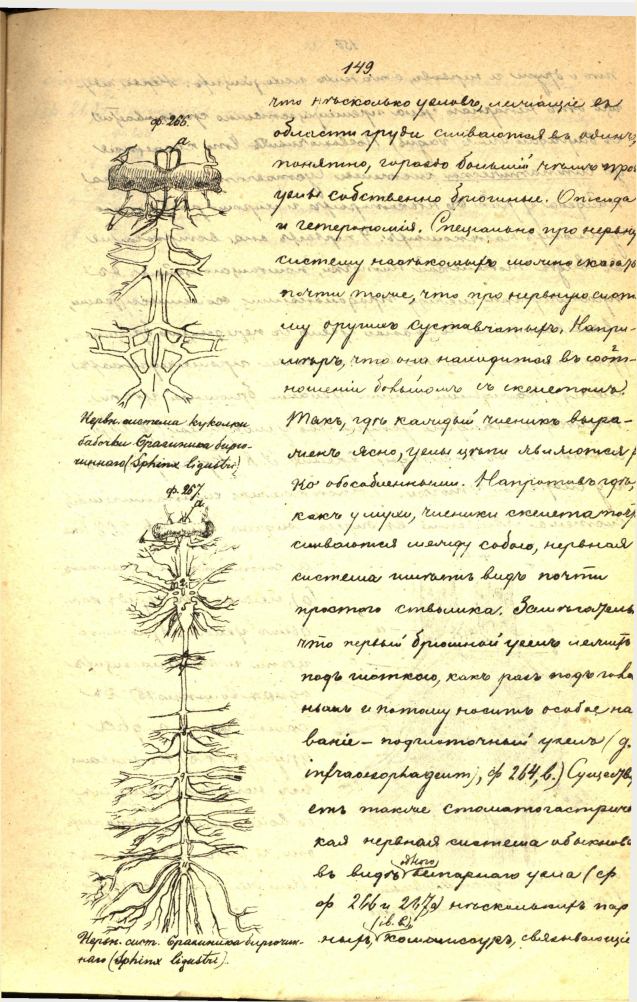 149.
ф. 266.
а
Нервн. система куколки
бабочки бражника бирю-
чиннаго (Sphinx ligustri)
ф. 267.
а
Нервн. сист. бражника бирючин-
наго (Sphinx ligustri).
что нѣсколько узловъ, лежащіе въ
области груди сливаются въ одинъ,
понятно, гораздо большій чѣмъ про
узлы собственно брюшные. Отсюда
и гетерономія. Спеціально про нервну
систему насѣкомыхъ можно сказать
почти тоже, что про нервную сист
му другихъ суставчатыхъ. Напри-
мѣръ, что она находится въ соот-
ношеніи большомъ съ скелетомъ.
Такъ, гдѣ каждый членикъ выра-
женъ ясно, узлы цѣпи являются р
ко обособленными. Напротивъ гдѣ,
какъ у мухи, членики скелета
сливаются между собою, нервная
система имѣетъ видъ почти
простого стволика. Замѣчатель
что первый брюшной узелъ лежитъ
подъ глоткою, какъ разъ подъ голов
нымъ и потому носитъ особое на
ваніе – подглоточный узелъ (g.
infraoesophageum), ф 264, b.) Существу
етъ также стоматогастриче
кая нервная система обыкнове
въ видѣ одного непарнаго узла (ср
ф 266 и 267а) нѣсколькихъ пар
ныхъ, коммисуръ, связывающіе